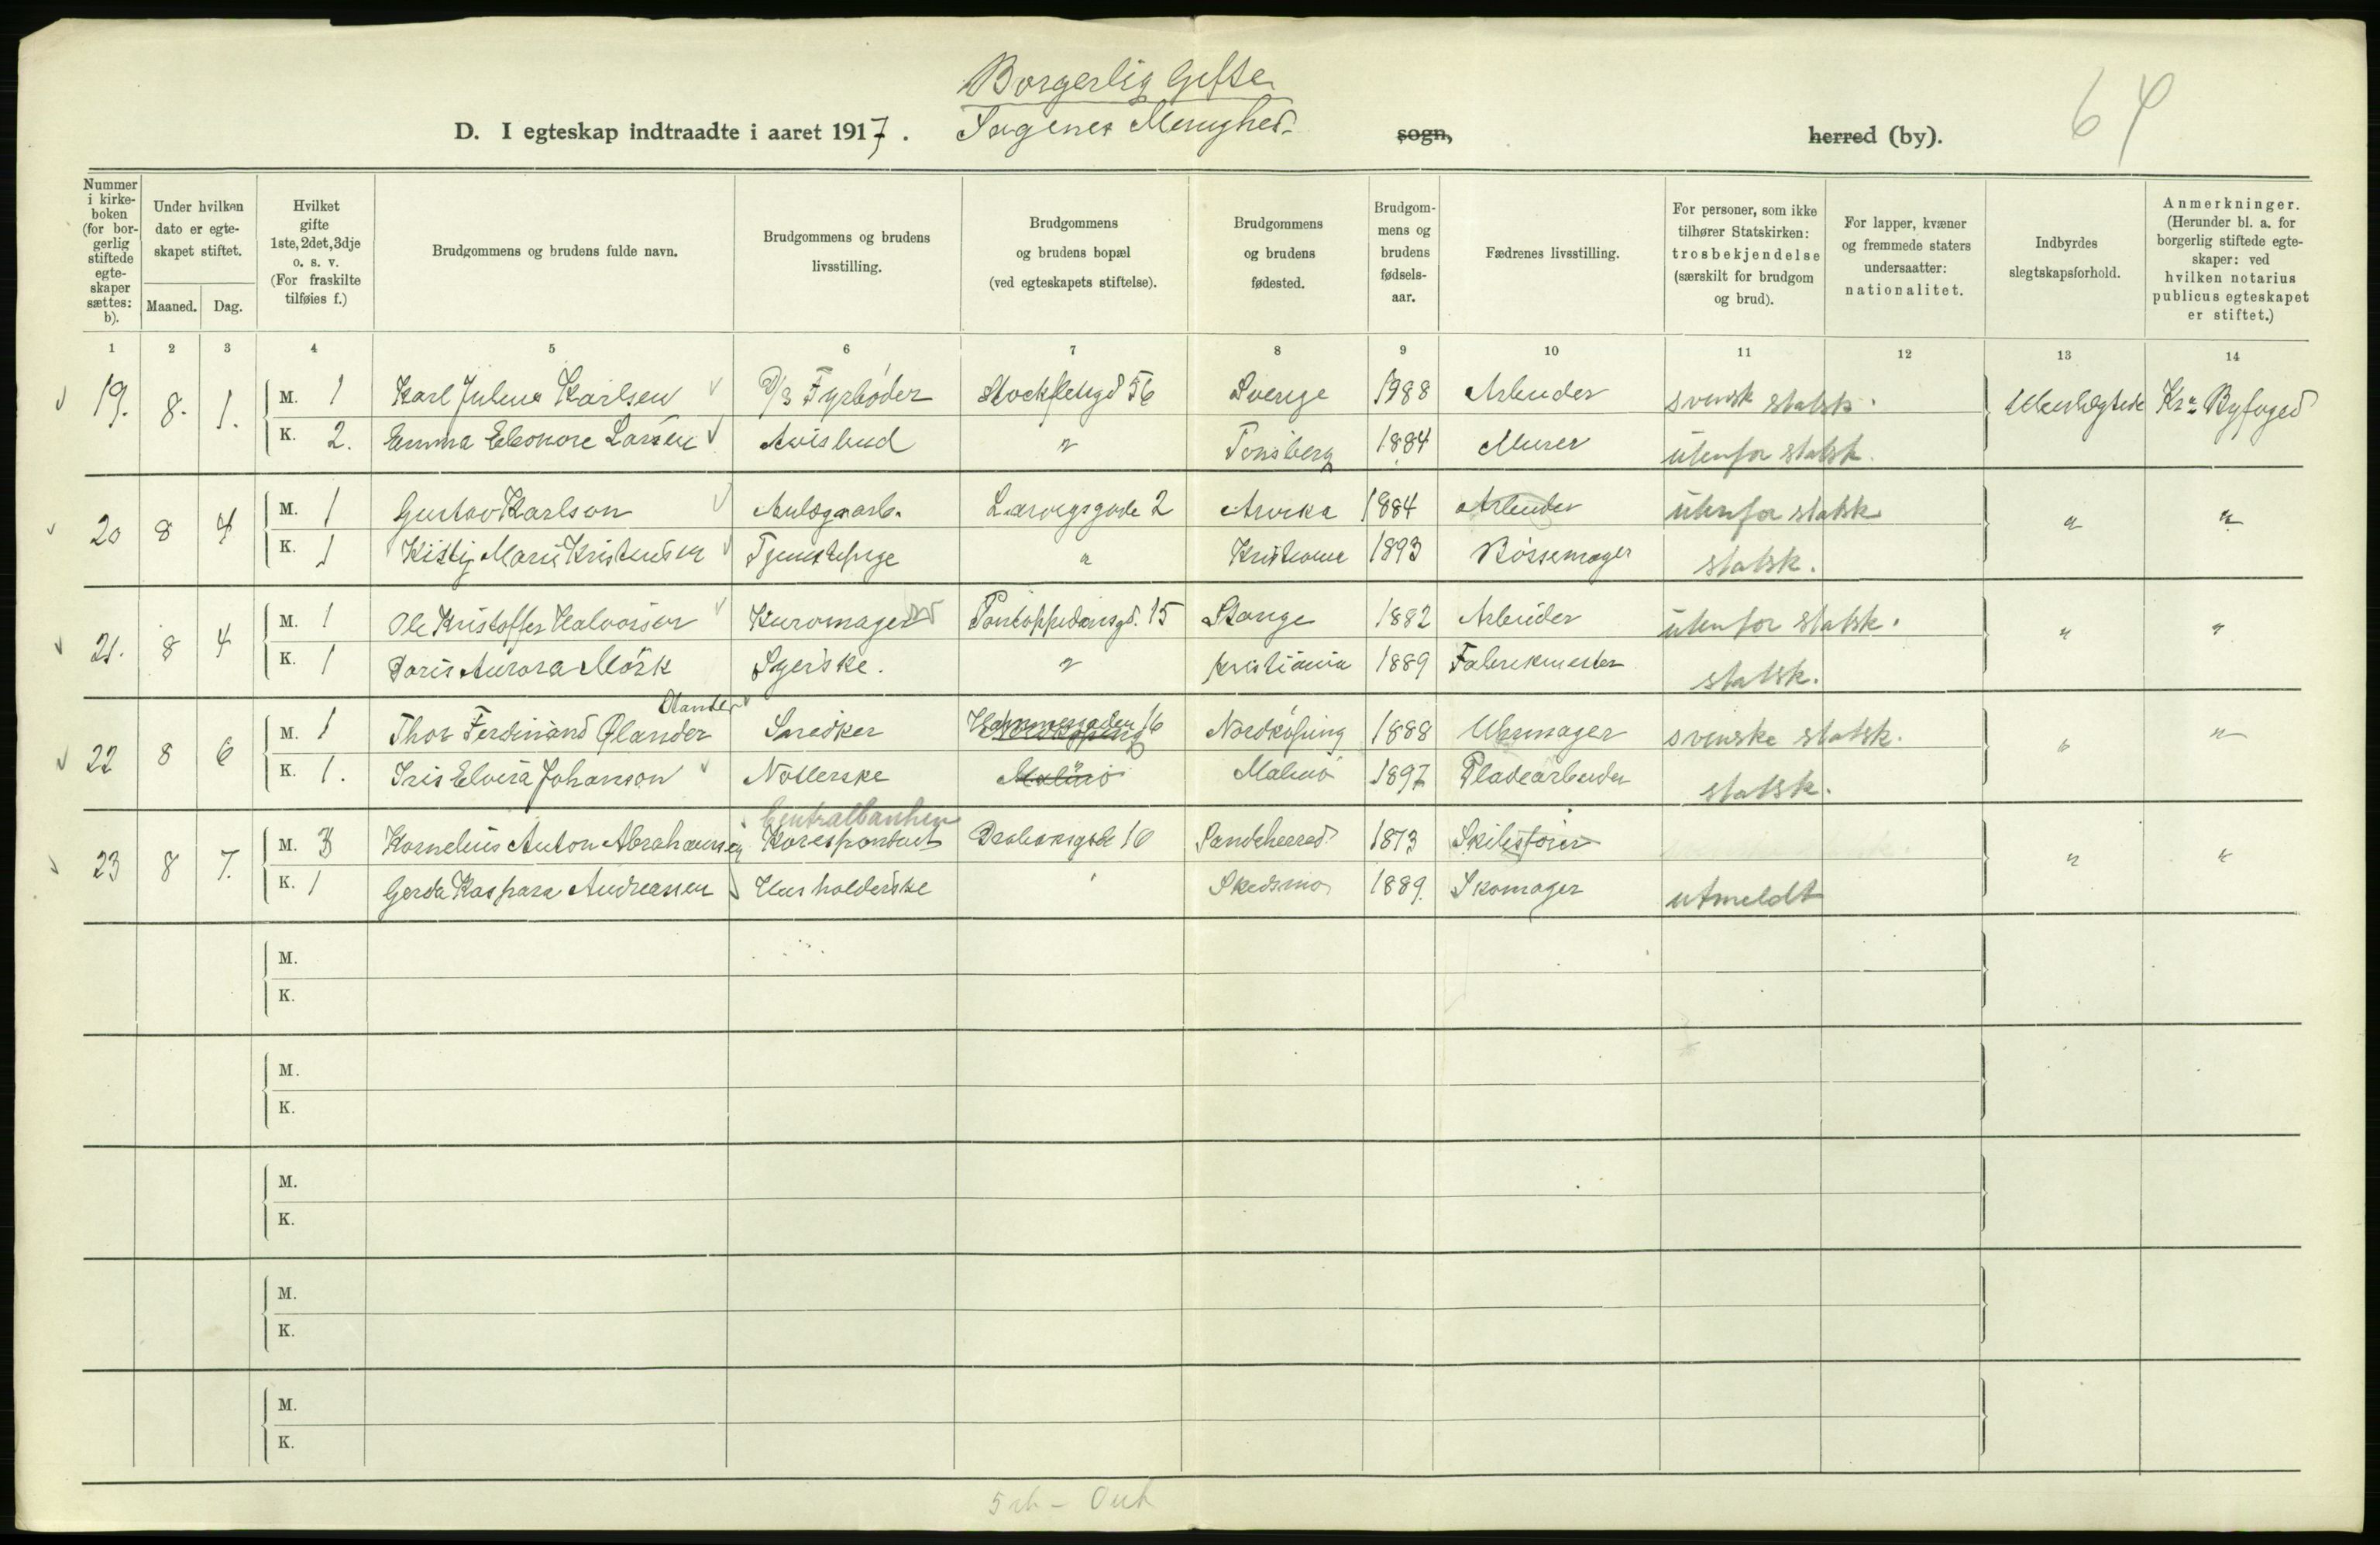 Borgerlig Gifte
D. I egteskap indtraadte i aaret 1917. Sagenes Menighed. sogn, herred (by). 64
Nummer i kirkeboken (for borgerlig stiftede egteskaper sættes: b). | Under hvilken dato er egteskapet stiftet. Maaned. Dag. | Hvilket gifte 1ste, 2det, 3dje o. s. v. (For fraskilte tilføies f.) | Brudgommens og brudens fulde navn. | Brudgommens og brudens livsstilling. | Brudgommens og brudens bopæl (ved egteskapets stiftelse). | Brudgommens og brudens fødested. | Brudgommens og brudens fødselsaar. | Fædrenes livsstilling. | For personer, som ikke tilhører Statskirken: trosbekjendelse (særskilt for brudgom og brud). | For lapper, kvæner og fremmede staters undersaatter: nationalitet. | Indbyrdes slegtskapsforhold. | Anmerkninger. (Herunder bl. a. for borgerlig stiftede egteskaper: ved hvilken notarius publicus egteskapet er stiftet.)
1 2 3 4 5 6 7 8 9 10 11 12 13 14
19. 8. 1. M. 1 Karl Julius Karlsen D/S Fyrbøder Stockflethgd 56 Sverige 1988 Arbeider svensk statsk. Ubeslægtede Kra Byfoged
K. 2. Emma Eleonore Larsen Avisbud " Tønsberg 1884 Murer utenfor statsk.
20 8 4 M. 1 Gustav Karlson Anlægsarb. Larvigsgade 2 Arvika 1884 Arbeider utenfor statsk. " "
K. 1 Kitty Marie Kristensen Tjenestepige " Kristiania 1893 Bøssemager statsk.
21. 8 4 M. 1 Ole Kristoffer Halvorsen Kurvmager Pontoppidansgd. 15 Stange 1882 Arbeider utenfor statsk. " "
K. 1 Doris Aurora Mörk Syerske. " Kristiania 1889 Fabrikmester statsk.
Olander
22 8 6 M. 1 Thor Ferdinand Ølander Snedker 16 Norrköping Nordköping 1888 Uhrmager svenske statsk. " "
K. 1. Iris Elvira Johanson Nopperske Malmö Malmö 1897 Pladearbeider statsk.
Centralbanken
23 8 7. M. 3 Kornelius Anton Abrahamsen Korespondent 16 Sandeherred 1873 " "
K. 1 Gerda Kaspara Andreassen Husholderske " Skedsmo 1889. Skomager utmeldt
M.
K.
M.
K.
M.
K.
M.
K.
M.
K.